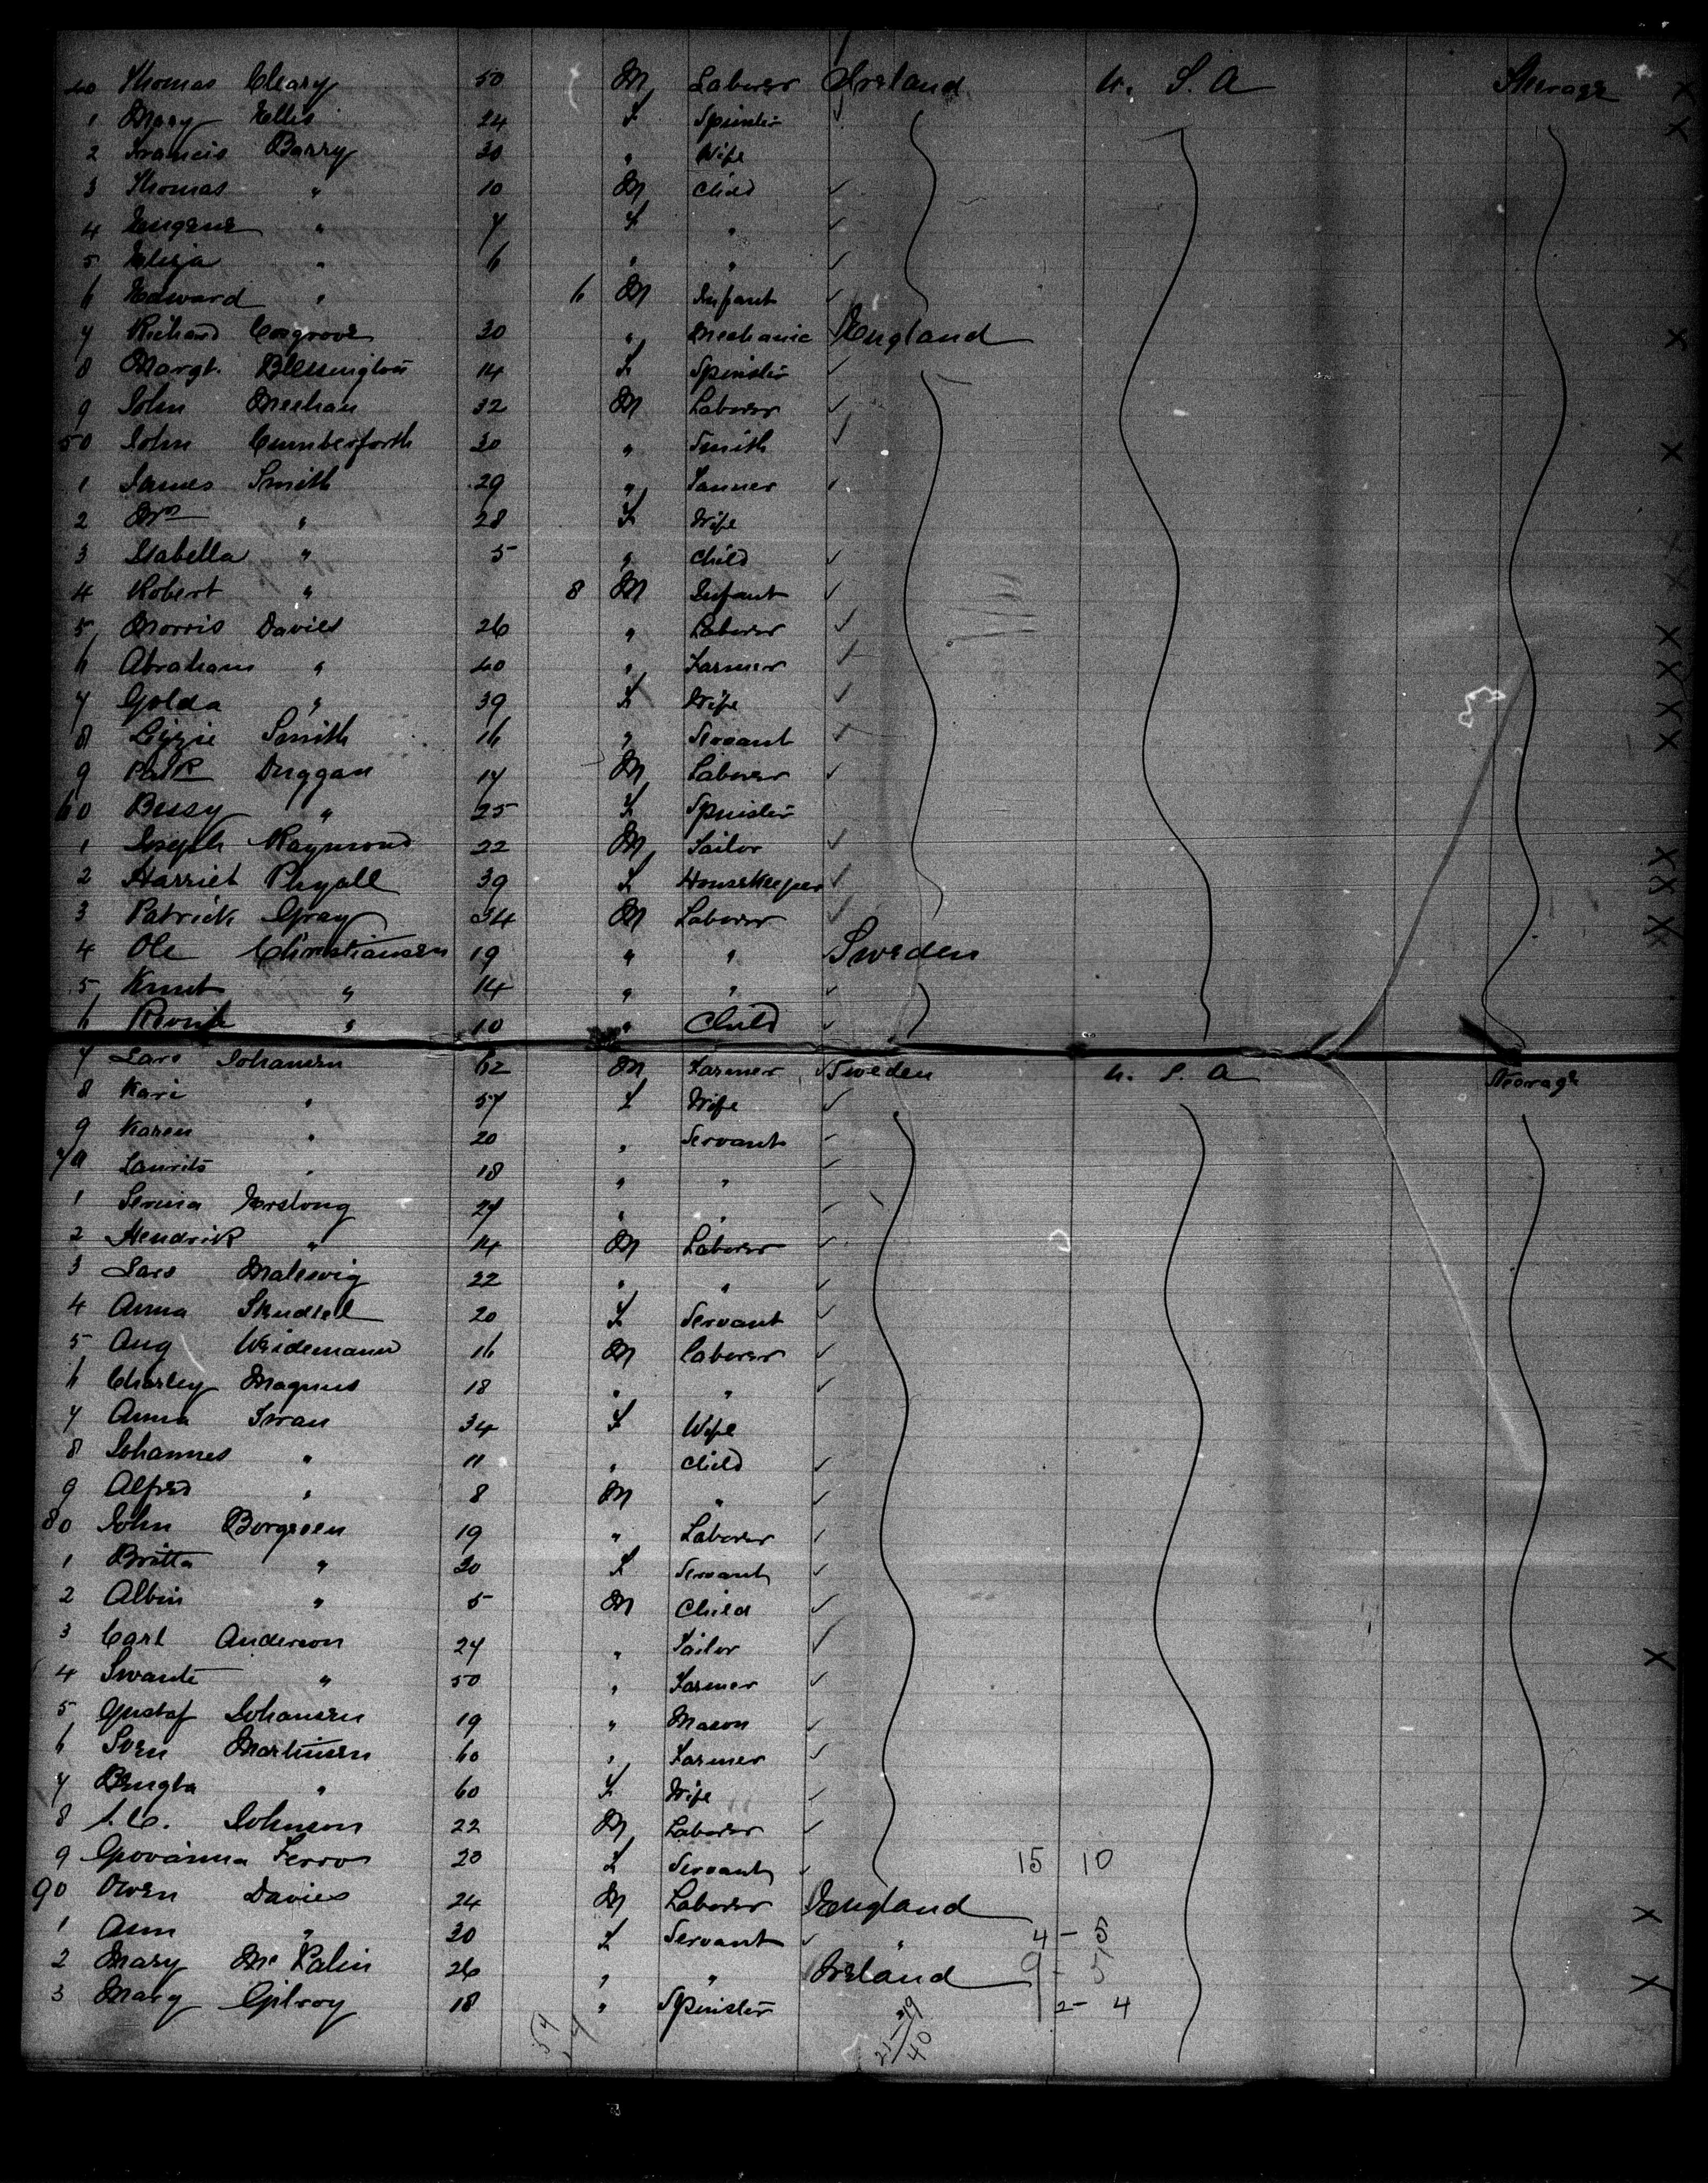 40 Thomas Cleary 50 M Laborer Ireland U. S. A Steerage
1 Mary Ellis 24 F Spinster
2 Francis Barry 30 " Wife
3 Thomas " 10 M Child
4 Eugene " 7 F "
5 Eliza " 6 " "
6 Edward " 6 M Infant
7 Richard Cosgrove 30 " Mechanic England
8 Margt. Blessington 14 F Spinster
9 John Meehan 32 M Laborer
50 John Cumberforth 30 " Smith
1 James Smith 29 " Tanner
2 Mrs " 28 F Wife
3 Isabella " 5 " Child
4 Robert " 8 M Infant
5 Morris Davies 26 " Laborer
6 Abraham " 40 " Farmer
7 Golda " 39 F Wife
8 Lizzie Smith 16 " Servant
9 Patk Duggan 17 M Laborer
60 Bessy " 25 F Spinster
1 Joseph Raymond 22 M Tailor
2 Harriet Phyall 39 F Housekeeper
3 Patrick Gray 34 M Laborer
4 Ole Christiansen 19 " " Sweden
5 Knut " 14 " "
6 " 10 " Child
7 Lars Johansen 62 M Farmer Sweden U. S. A Steerage
8 Kari " 57 F Wife
9 Karen " 20 " Servant
70 Laurits " 18 " "
1 27 " "
2 Hendrik " 14 M Laborer
3 Lars Malesvig 22 " "
4 Anna 20 F Servant
5 Aug Weidemann 16 M Laborer
6 Charley Magnus 18 " "
7 Anna Swan 34 F Wife
8 Johannes " 11 " Child
9 Alfred " 8 M "
80 John Borgreen 19 " Laborer
1 Britta " 30 F Servant
2 Albin " 5 M Child
3 Carl Anderson 27 " Tailor
4 Swante " 50 " Farmer
5 Gustaf Johansen 19 " Mason
6 Sven Martinsen 60 " Farmer
7 Bengta " 60 F Wife
8 Johnson 22 M Laborer
9 Govanna Ferro 20 F Servant 15 10
90 Owen Davies 24 M Laborer England
1 Ann " 30 F Servant " 4 - 5
2 Mary Mc Palin 26 " " Ireland 9 - 5
3 Mary Gilroy 18 " Spinster 2 - 4